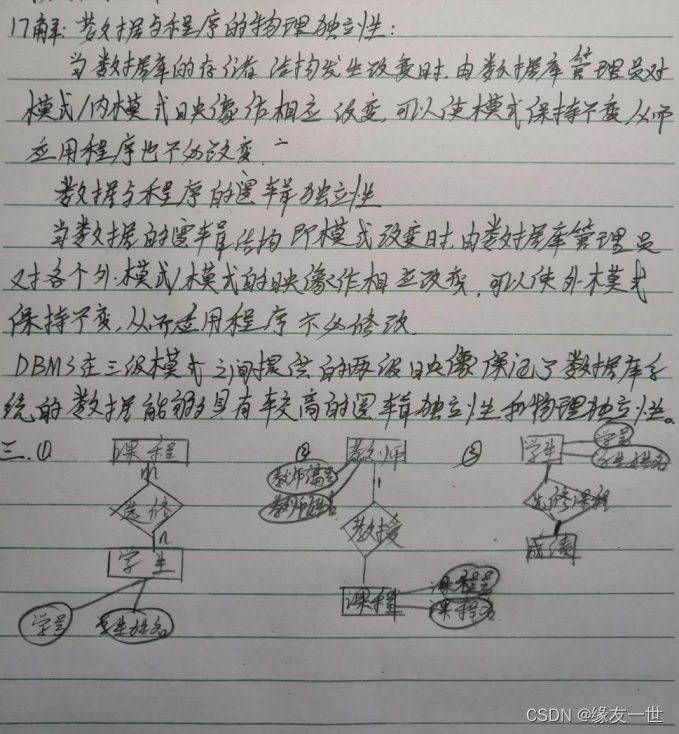 17解:数据与程序的物理独立性:
当数据库的存储结构发生改变时,由数据库管理员对
模式/内模式映像作相应改变,可以使模式保持不变,从而
应用程序也不必改变.
数据与程序的逻辑独立性
当数据的逻辑结构即模式改变时,由数据库管理员
对各个外模式/模式的映像作相应改变,可以使外模式
保持不变,从而应用程序不必修改.
DBMS在三级模式之间提供的两级映像保证了数据库系
统的数据能够具有较高的逻辑独立性和物理独立性。
三.①
课程
m
选修
n
学生
学号
学生姓名
②
教师
教师编号
教师姓名
1
教授
课程
课程号
课程名
③
学生
学号
学生姓名
选修课程
成绩
CSDN @缘友一世